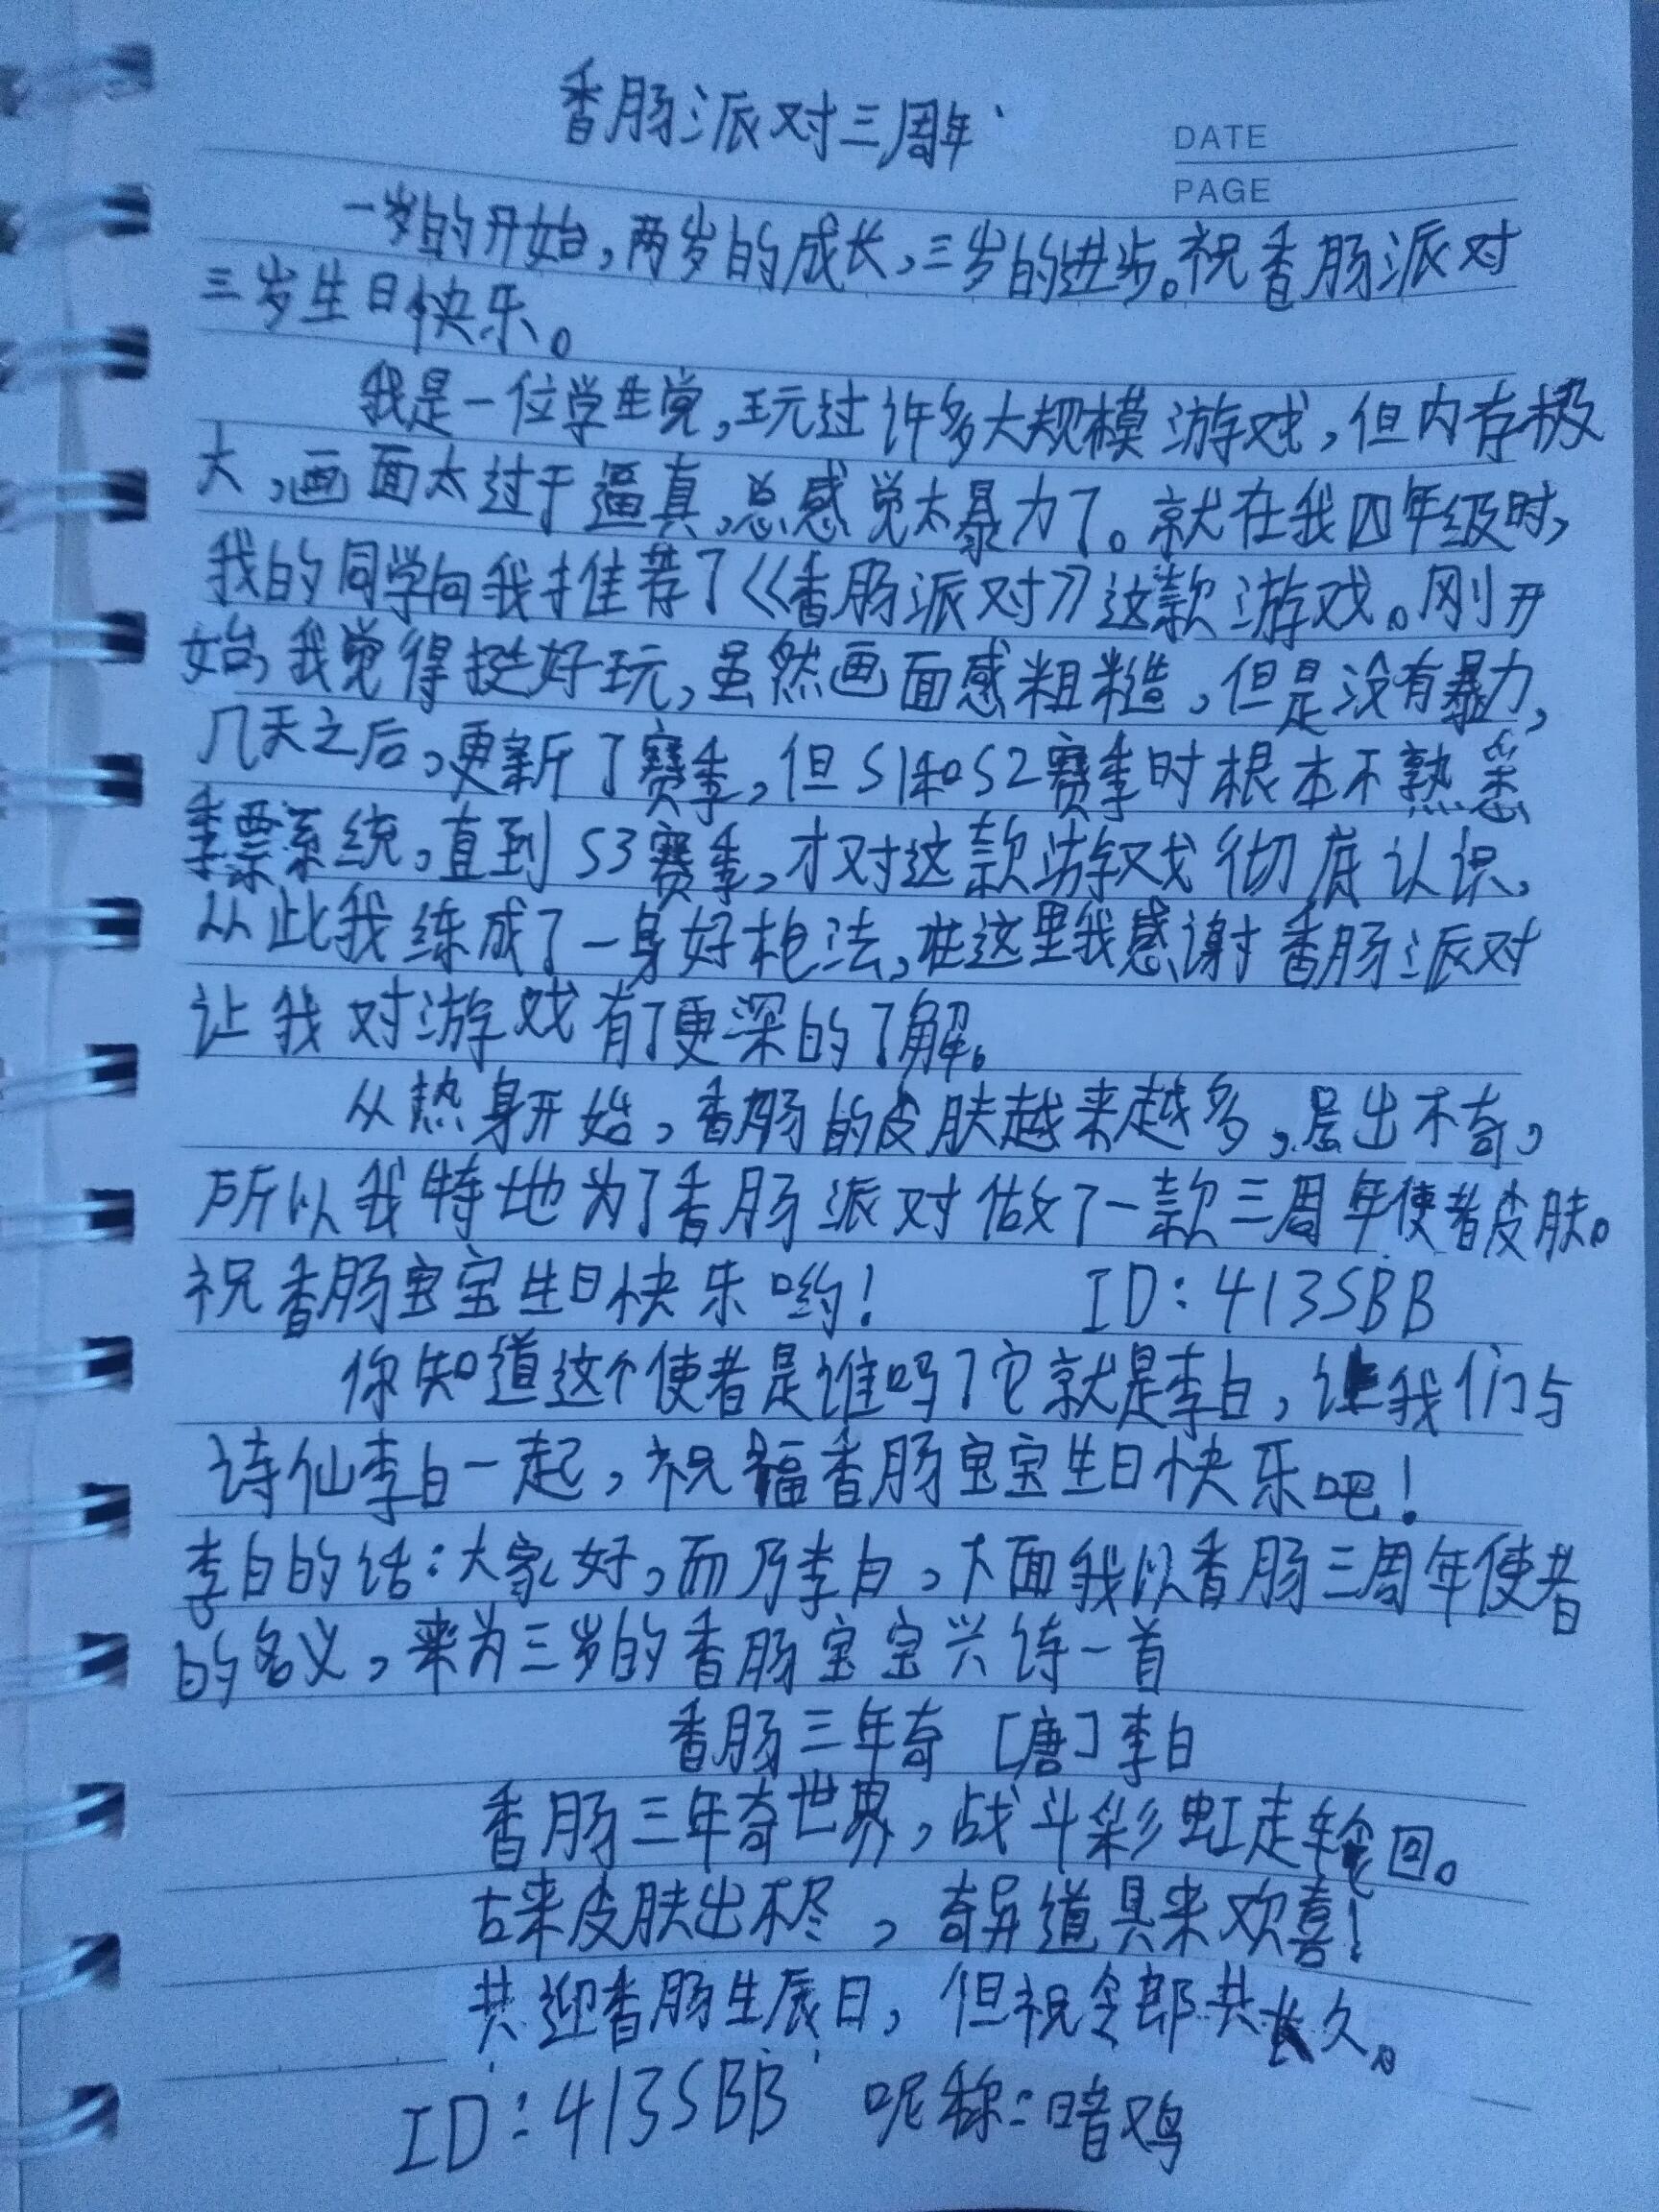 香肠派对三周年
DATE
PAGE
一岁的开始,两岁的成长,三岁的进步。祝香肠派对
三岁生日快乐。
我是一位学生党,玩过许多大规模游戏,但内存极
大,画面太过于逼真,总感觉太暴力了。就在我四年级时,
我的同学向我推荐了《香肠派对》这款游戏。刚开
始,我觉得挺好玩,虽然画面感粗糙,但是没有暴力,
几天之后,更新了赛季,但S1和S2赛季时根本不熟悉
季票系统。直到S3赛季,才对这款游戏彻底认识,
从此我练成了一身好枪法,在这里我感谢香肠派对
让我对游戏有了更深的了解。
从热身开始,香肠的皮肤越来越多,层出不奇,
所以我特地为了香肠派对做了一款三周年使者皮肤。
祝香肠宝宝生日快乐哟! ID:413SBB
你知道这个使者是谁吗?它就是李白,让我们与
诗仙李白一起,祝福香肠宝宝生日快乐吧!
李白的话:大家好,而乃李白,下面我以香肠三周年使者
的名义,来为三岁的香肠宝宝兴诗一首
香肠三年奇 [唐]李白
香肠三年奇世界,战斗彩虹走轮回。
古来皮肤出不尽,奇异道具来欢喜!
共迎香肠生辰日,但祝令郎共长久。
ID:413SBB 呢称:暗鸡